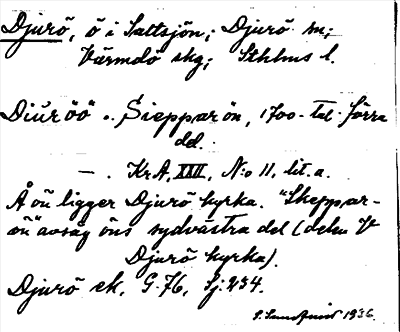 Djurö, ö i Saltsjön; Djurö m;
Värmdö skg; Sthlms l.
Diuröö .. Siepparön, 1700-tal förra
del.
— . KrA, XXII, N:o 11, lit. a.
Å ön ligger Djurö kyrka. "Skeppar-
ön" avsåg öns sydvästra del (delen V
Djurö kyrka).
Djurö ek, G 76, Sj: 234.
1936.